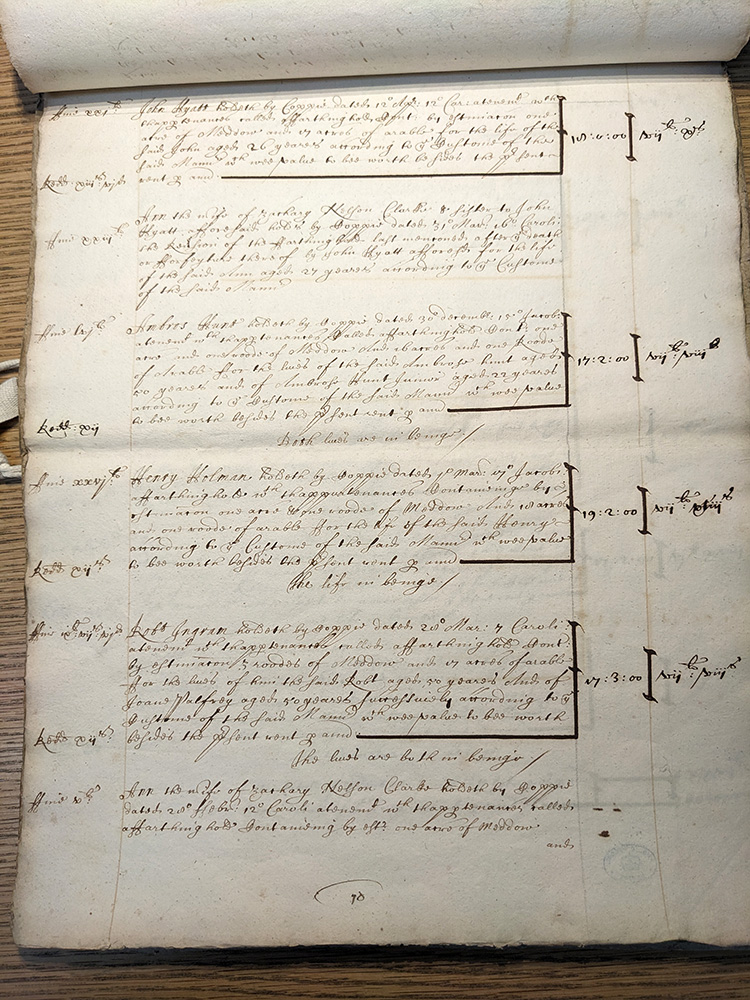 ffine xxijˡⁱ John Hyatt holdeth by Coppie dated 12° Apr: 12° Car: a tenemᵗ wᵗʰ
thapptenances called a ffarthinghold Cont: by estimacion one
acre of Meddow and 17 acres of arable for the life of the
said John aged 26 yeares according to yᵉ Custome of the
said Mannʳ wᶜʰ wee value to bee worth besides the pʳsent
Redd: rent p ann
18:0:00
Ann the wife of Zachary Nelson Clarke & sister to John
Hyatt afforesaid holdeth by Coppie dated 31° Mar: 16° Caroli
ffine xxijˡⁱ the Revrsion of the ffarthinghold last mentioned after yᵉ death
or fforfeyture thereof by John Hyatt afforesᵈ for the life
of the said Ann aged 27 yeares according to yᵉ Custome
of the said Mannʳ
ffine lvjˡⁱ Ambros Hunt holdeth by Coppie dated 30° decemb: 15° Jacobi
a tenemᵗ wᵗʰ thapptenances Called a ffarthinghold Cont: one
acre and one roode of Meddow And 16 acres and one Roode
of Arable for the lives of the said Ambrose Hunt aged
50 yeares and of Ambrose Hunt Junior aged 22 yeares
according to yᵉ Custome of the said Mannʳ wᶜʰ wee value
Redd: xij to bee worth besides the pʳsent rent p ann
17:2:00
Both lives are in beinge /
ffine xxvjˡⁱ Henry Holman holdeth by Coppie dated Mar: Jacobi
a ffarthinghold wᵗʰ thappurtenances Conteineinge by
estimacion one acre & one roode of Meddow And 18 acres
and one roode of arable for the life of the said Henry
according to yᵉ Custome of the said Mannʳ wᶜʰ wee value
Redd: xijˢ to bee worth besides the pʳsent rent p ann
19:2:00
The life in beinge /
ffine Robᵗ Ingram holdeth by Coppie dated 20° Mar: 7 Caroli
a tenemᵗ wᵗʰ thapptenances called a ffarthinghold Cont:
by estimacion 5 roodes of Meddow and 17 acres of arable
for the lives of him the said Robt aged 50 yeares And of
Joane Palfrey aged 50 yeares Successively according to yᵉ
Custome of the said Mannʳ wᶜʰ wee value to bee worth
Redd: xijˢ besides the pʳsent rent p ann
17:3:00
The lives are both in beinge /
ffine xˡⁱ Ann the wife of Zachary Nelson Clarke holdeth by Coppie
dated 20° Febr: 12° Caroli a tenemᵗ wᵗʰ thapptenances called
a ffarthinghold Containinig by estⁱ: one acre of Meddow
and